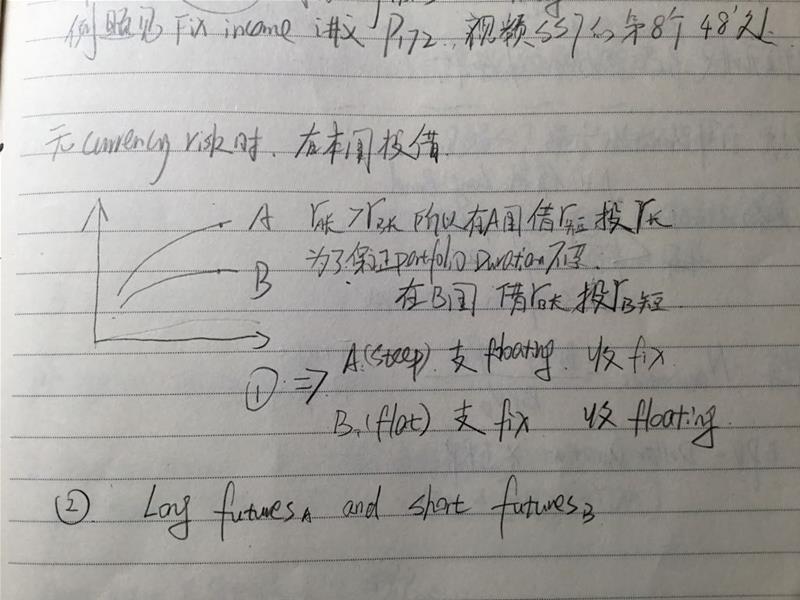 例题见 Fix income 讲义 P172, 视频SS7的第8个 48'处
无 currency risk时, 在本国投借
A r A长 > r B长 所以在A国 借 r短 投 r长
为了保证portfolio Duration不变,
B 在B国 借 r B长 投 r B短
① ⇒ A.(steep) 支 floating. 收 fix
B.(flat) 支 fix 收 floating.
② Long futures A and short futures B